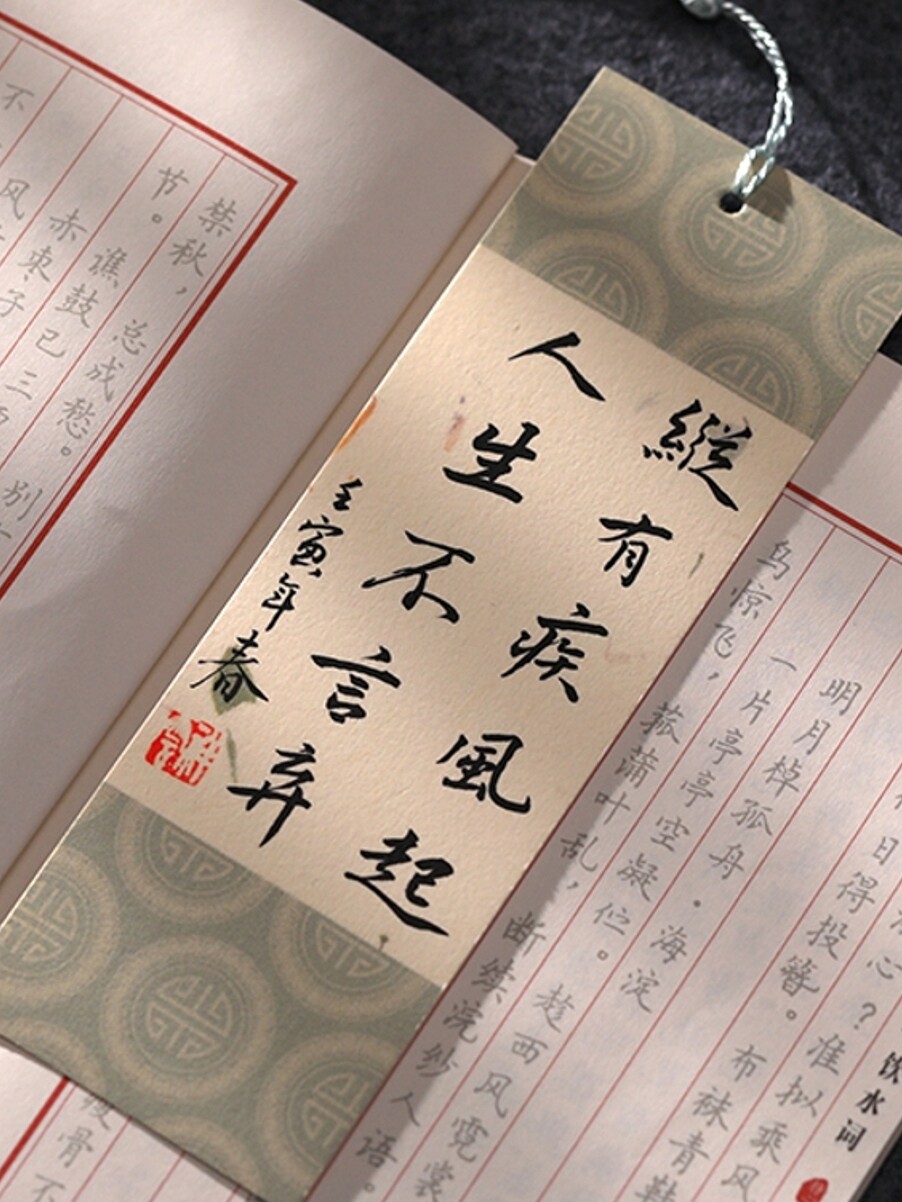 縱有疾風起
人生不言弃
壬寅年春
心？准拟乘风
日得投簪。布袜青鞋
明月棹孤舟·海淀
一片亭亭空凝伫。趁西风霓裳
鸟惊飞，菰蒲叶乱，断续浣纱人语。
饮水词
禁秋，总成愁。别
节。谯鼓已三
赤枣子
风
不
骨不